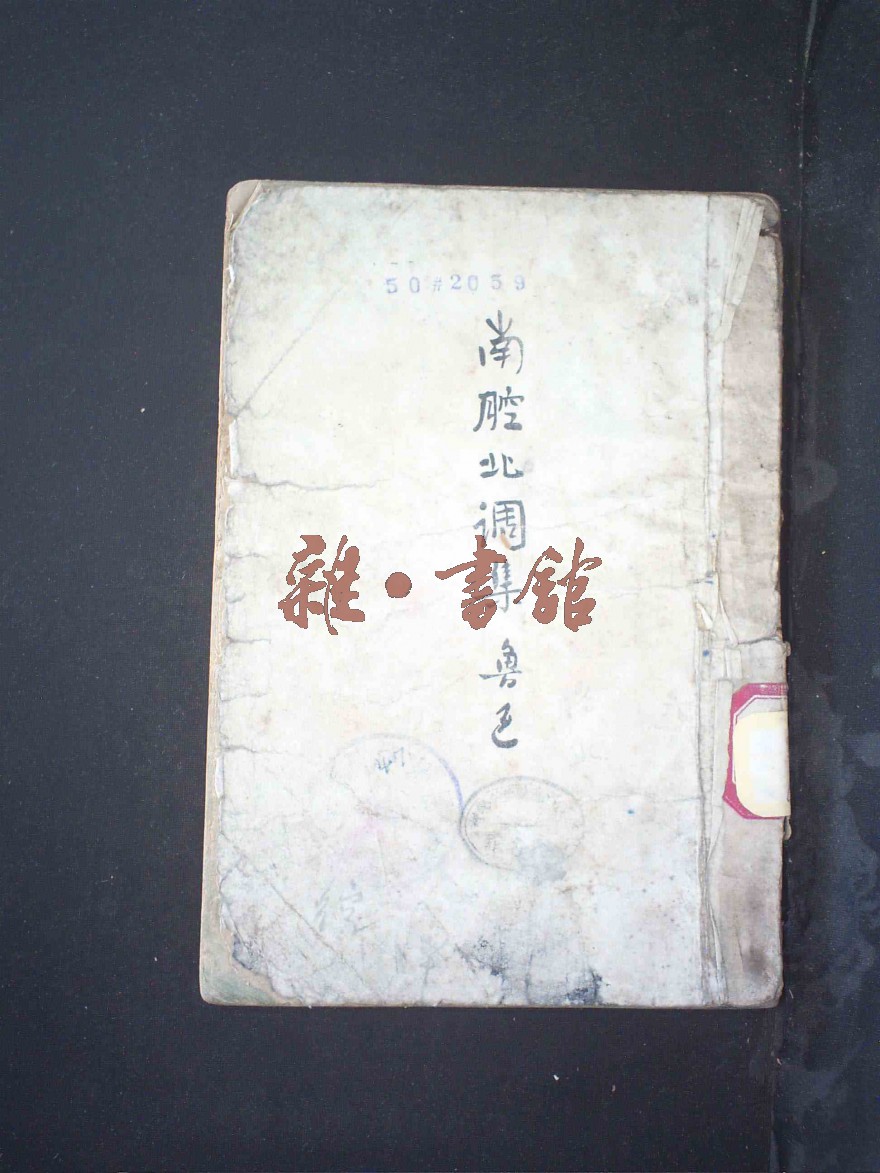 50#2059
南腔北调集 魯迅
雜·書館